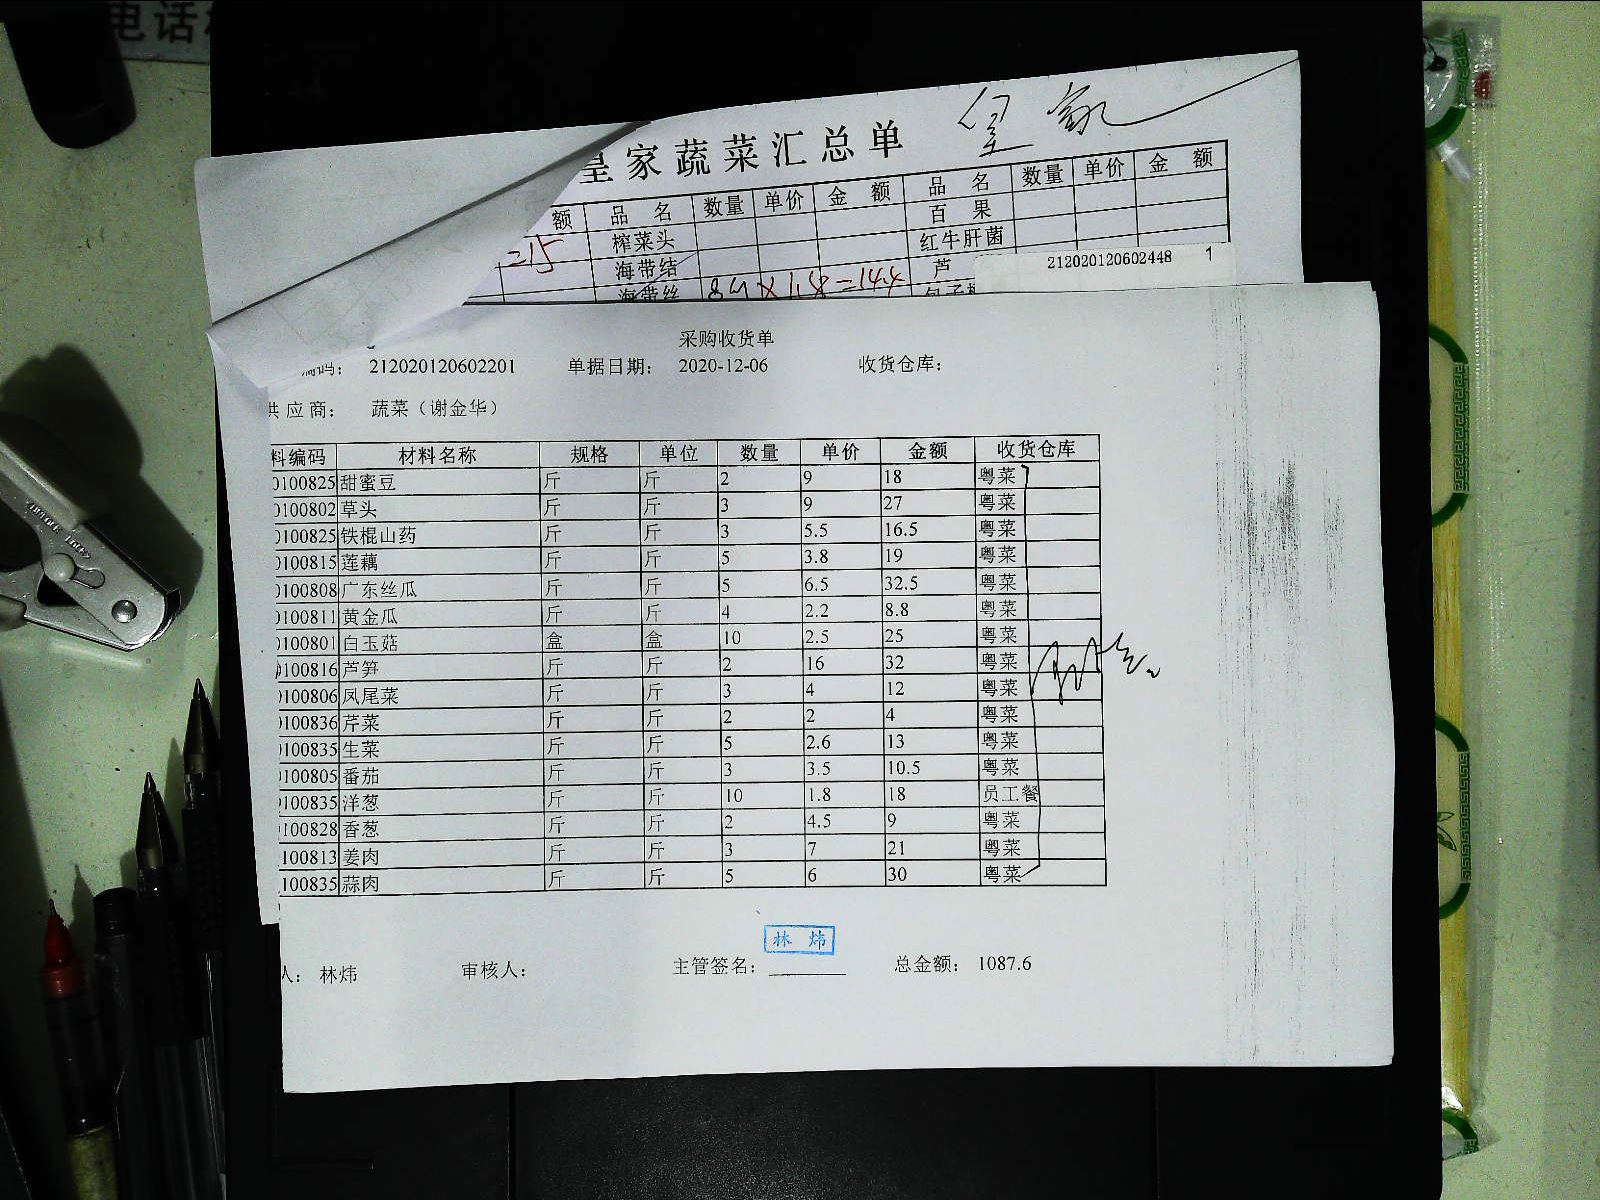 电话
皇家蔬菜汇总单 皇家
额 品名 数量 单价 金额 品名 数量 单价 金额
=215 榨菜头 百果
海带结 红牛肝菌
海带丝 8斤×1.8=14.4 芦
212020120602448 1
采购收货单
编码: 212020120602201 单据日期: 2020-12-06 收货仓库:
供应商: 蔬菜(谢金华)
料编码 材料名称 规格 单位 数量 单价 金额 收货仓库
0100825 甜蜜豆 斤 斤 2 9 18 粤菜
0100802 草头 斤 斤 3 9 27 粤菜
0100825 铁棍山药 斤 斤 3 5.5 16.5 粤菜
0100815 莲藕 斤 斤 5 3.8 19 粤菜
0100808 广东丝瓜 斤 斤 5 6.5 32.5 粤菜
0100811 黄金瓜 斤 斤 4 2.2 8.8 粤菜
0100801 白玉菇 盒 盒 10 2.5 25 粤菜
0100816 芦笋 斤 斤 2 16 32 粤菜
0100806 凤尾菜 斤 斤 3 4 12 粤菜
0100836 芹菜 斤 斤 2 2 4 粤菜
0100835 生菜 斤 斤 5 2.6 13 粤菜
0100805 番茄 斤 斤 3 3.5 10.5 粤菜
0100835 洋葱 斤 斤 10 1.8 18 员工餐
0100828 香葱 斤 斤 2 4.5 9 粤菜
100813 姜肉 斤 斤 3 7 21 粤菜
100835 蒜肉 斤 斤 5 6 30 粤菜
林炜
人: 林炜 审核人: 主管签名: 总金额: 1087.6